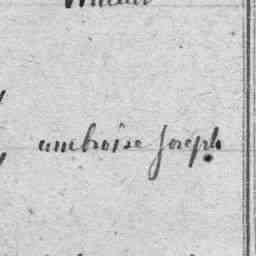 ambroise Joseph